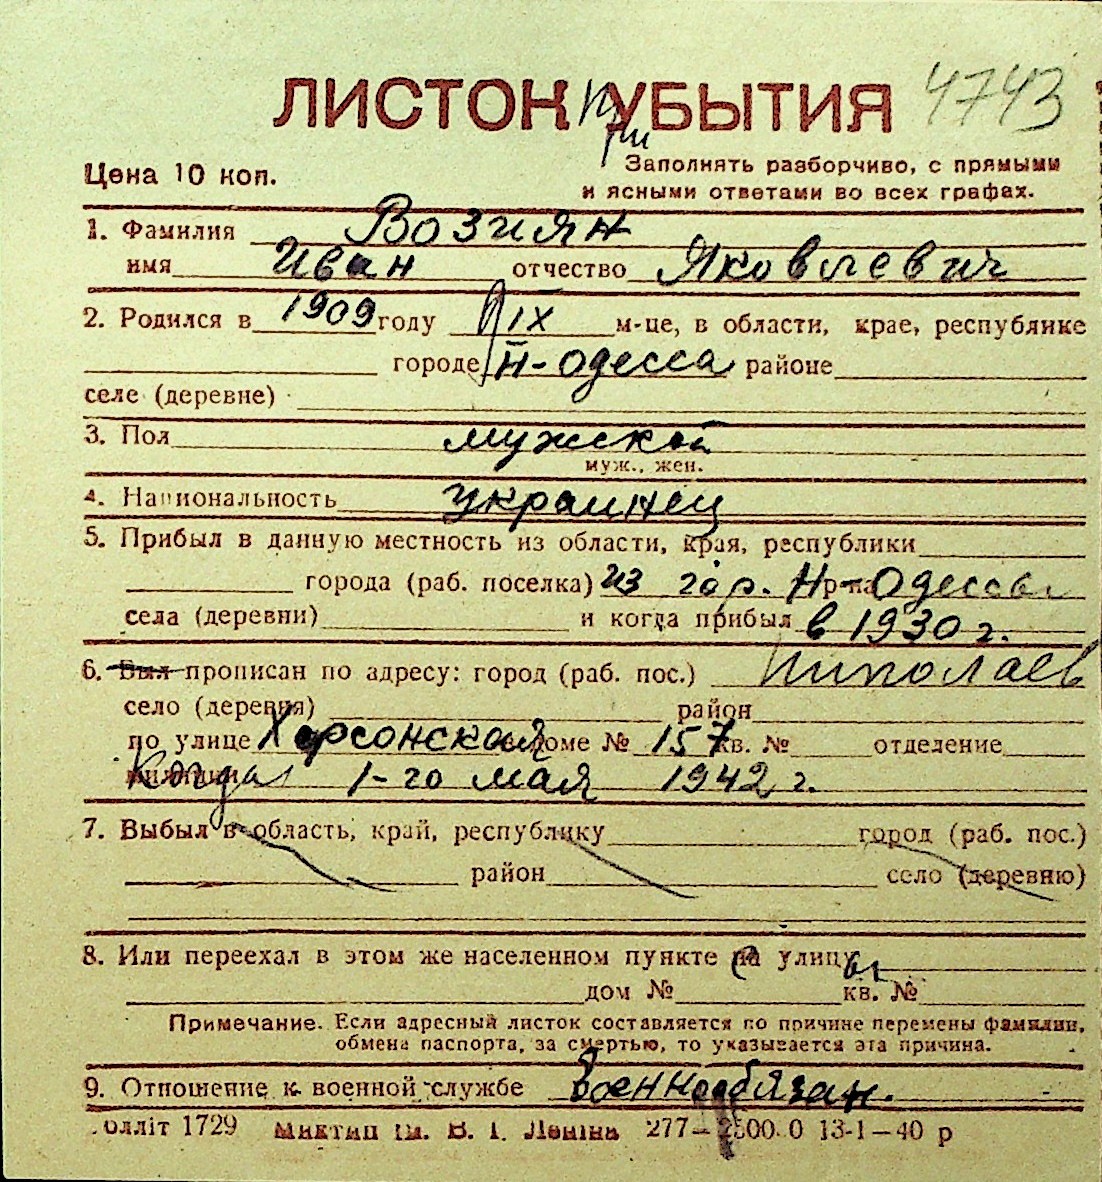 ЛИСТОК при УБЫТИЯ 4743
Цена 10 коп.
Заполнять разборчиво, с прямыми
и ясными ответами во всех графах.
1. Фамилия Возиян
имя Иван отчество Яковлевич
2. Родился в 1909 году IX м-це, в области, крае, республике
городе Н-Одесса районе
селе (деревне)
3. Пол мужской
муж., жен.
4. Национальность украинец
5. Прибыл в данную местность из области, края, республики
города (раб. поселка) из гор. Н-Одессы р-на
села (деревни) и когда прибыл в 1930 г.
6. Был прописан по адресу: город (раб. пос.) Николаев
село (деревня) район
по улице Херсонская в доме № 157 кв. № отделение
милиции Когда 1-го мая 1942 г.
7. Выбыл в область, край, республику город (раб. пос.)
район село (деревню)
8. Или переехал в этом же населенном пункте на улицу
дом № кв. №
Примечание. Если адресный листок составляется по причине перемены фамилии,
обмена паспорта, за смертью, то указывается эта причина.
9. Отношение к военной службе Военнообязан.
Толліт 1729 Миктип ім. В. І. Леніна 277— 13-1—40 р